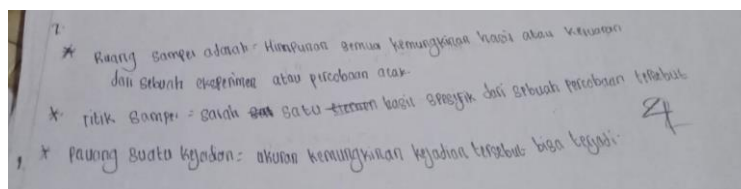 2.
* Ruang sampel adalah = Himpunan semua kemungkinan hasil atau keluaran
dari sebuah eksperimen atau percobaan acak.
* titik sampel = salah satu hasil spesifik dari sebuah percobaan tersebut
4
* Paluang suatu kejadian = ukuran kemungkinan kejadian tersebut bisa terjadi.